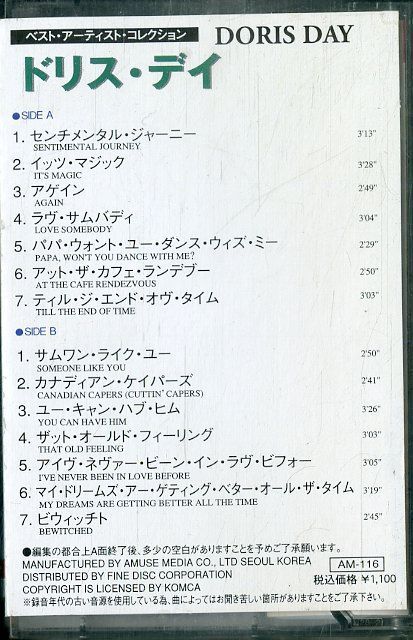 ベスト・アーティスト・コレクション DORIS DAY
ドリス・デイ
●SIDE A
1. センチメンタル・ジャーニー 3'13"
SENTIMENTAL JOURNEY
2. イッツ・マジック 3'28"
IT'S MAGIC
3. アゲイン 2'49"
AGAIN
4. ラヴ・サムバディ 3'04"
LOVE SOMEBODY
5. パパ・ウォント・ユー・ダンス・ウィズ・ミー 2'29"
PAPA, WON'T YOU DANCE WITH ME?
6. アット・ザ・カフェ・ランデブー 2'50"
AT THE CAFE RENDEZVOUS
7. ティル・ジ・エンド・オヴ・タイム 3'03"
TILL THE END OF TIME
●SIDE B
1. サムワン・ライク・ユー 2'50"
SOMEONE LIKE YOU
2. カナディアン・ケイパーズ 2'41"
CANADIAN CAPERS (CUTTIN' CAPERS)
3. ユー・キャン・ハブ・ヒム 3'26"
YOU CAN HAVE HIM
4. ザット・オールド・フィーリング 3'03"
THAT OLD FEELING
5. アイヴ・ネヴァー・ビーン・イン・ラヴ・ビフォー 3'05"
I'VE NEVER BEEN IN LOVE BEFORE
6. マイ・ドリームズ・アー・ゲティング・ベター・オール・ザ・タイム 3'19"
MY DREAMS ARE GETTING BETTER ALL THE TIME
7. ビウィッチト 2'45"
BEWITCHED
●編集の都合上A面終了後、多少の空白がありますことを予めご了承願います。
MANUFACTURED BY AMUSE MEDIA CO., LTD SEOUL KOREA AM-116
DISTRIBUTED BY FINE DISC CORPORATION 税込価格 ¥1,100
COPYRIGHT IS LICENSED BY KOMCA
※録音年代の古い音源を使用している為、曲によってはお聞き苦しい箇所がありますことをご了承下さい。